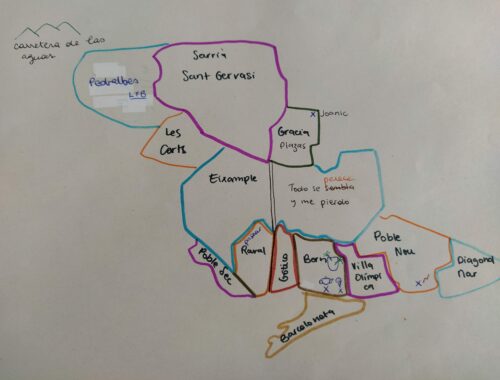 carretera de las
aguas
Sarrià
Sant Gervasi
Pedralbes
LFB
X Joanic
Gracia
Plazas
Les
Corts
Eixample
parece
Todo se sembla
y me pierdo
Poble Sec
Raval
Gotico
Born
Villa
Olimpi
ca
Poble
Nou
Diagonal
Mar
Barceloneta